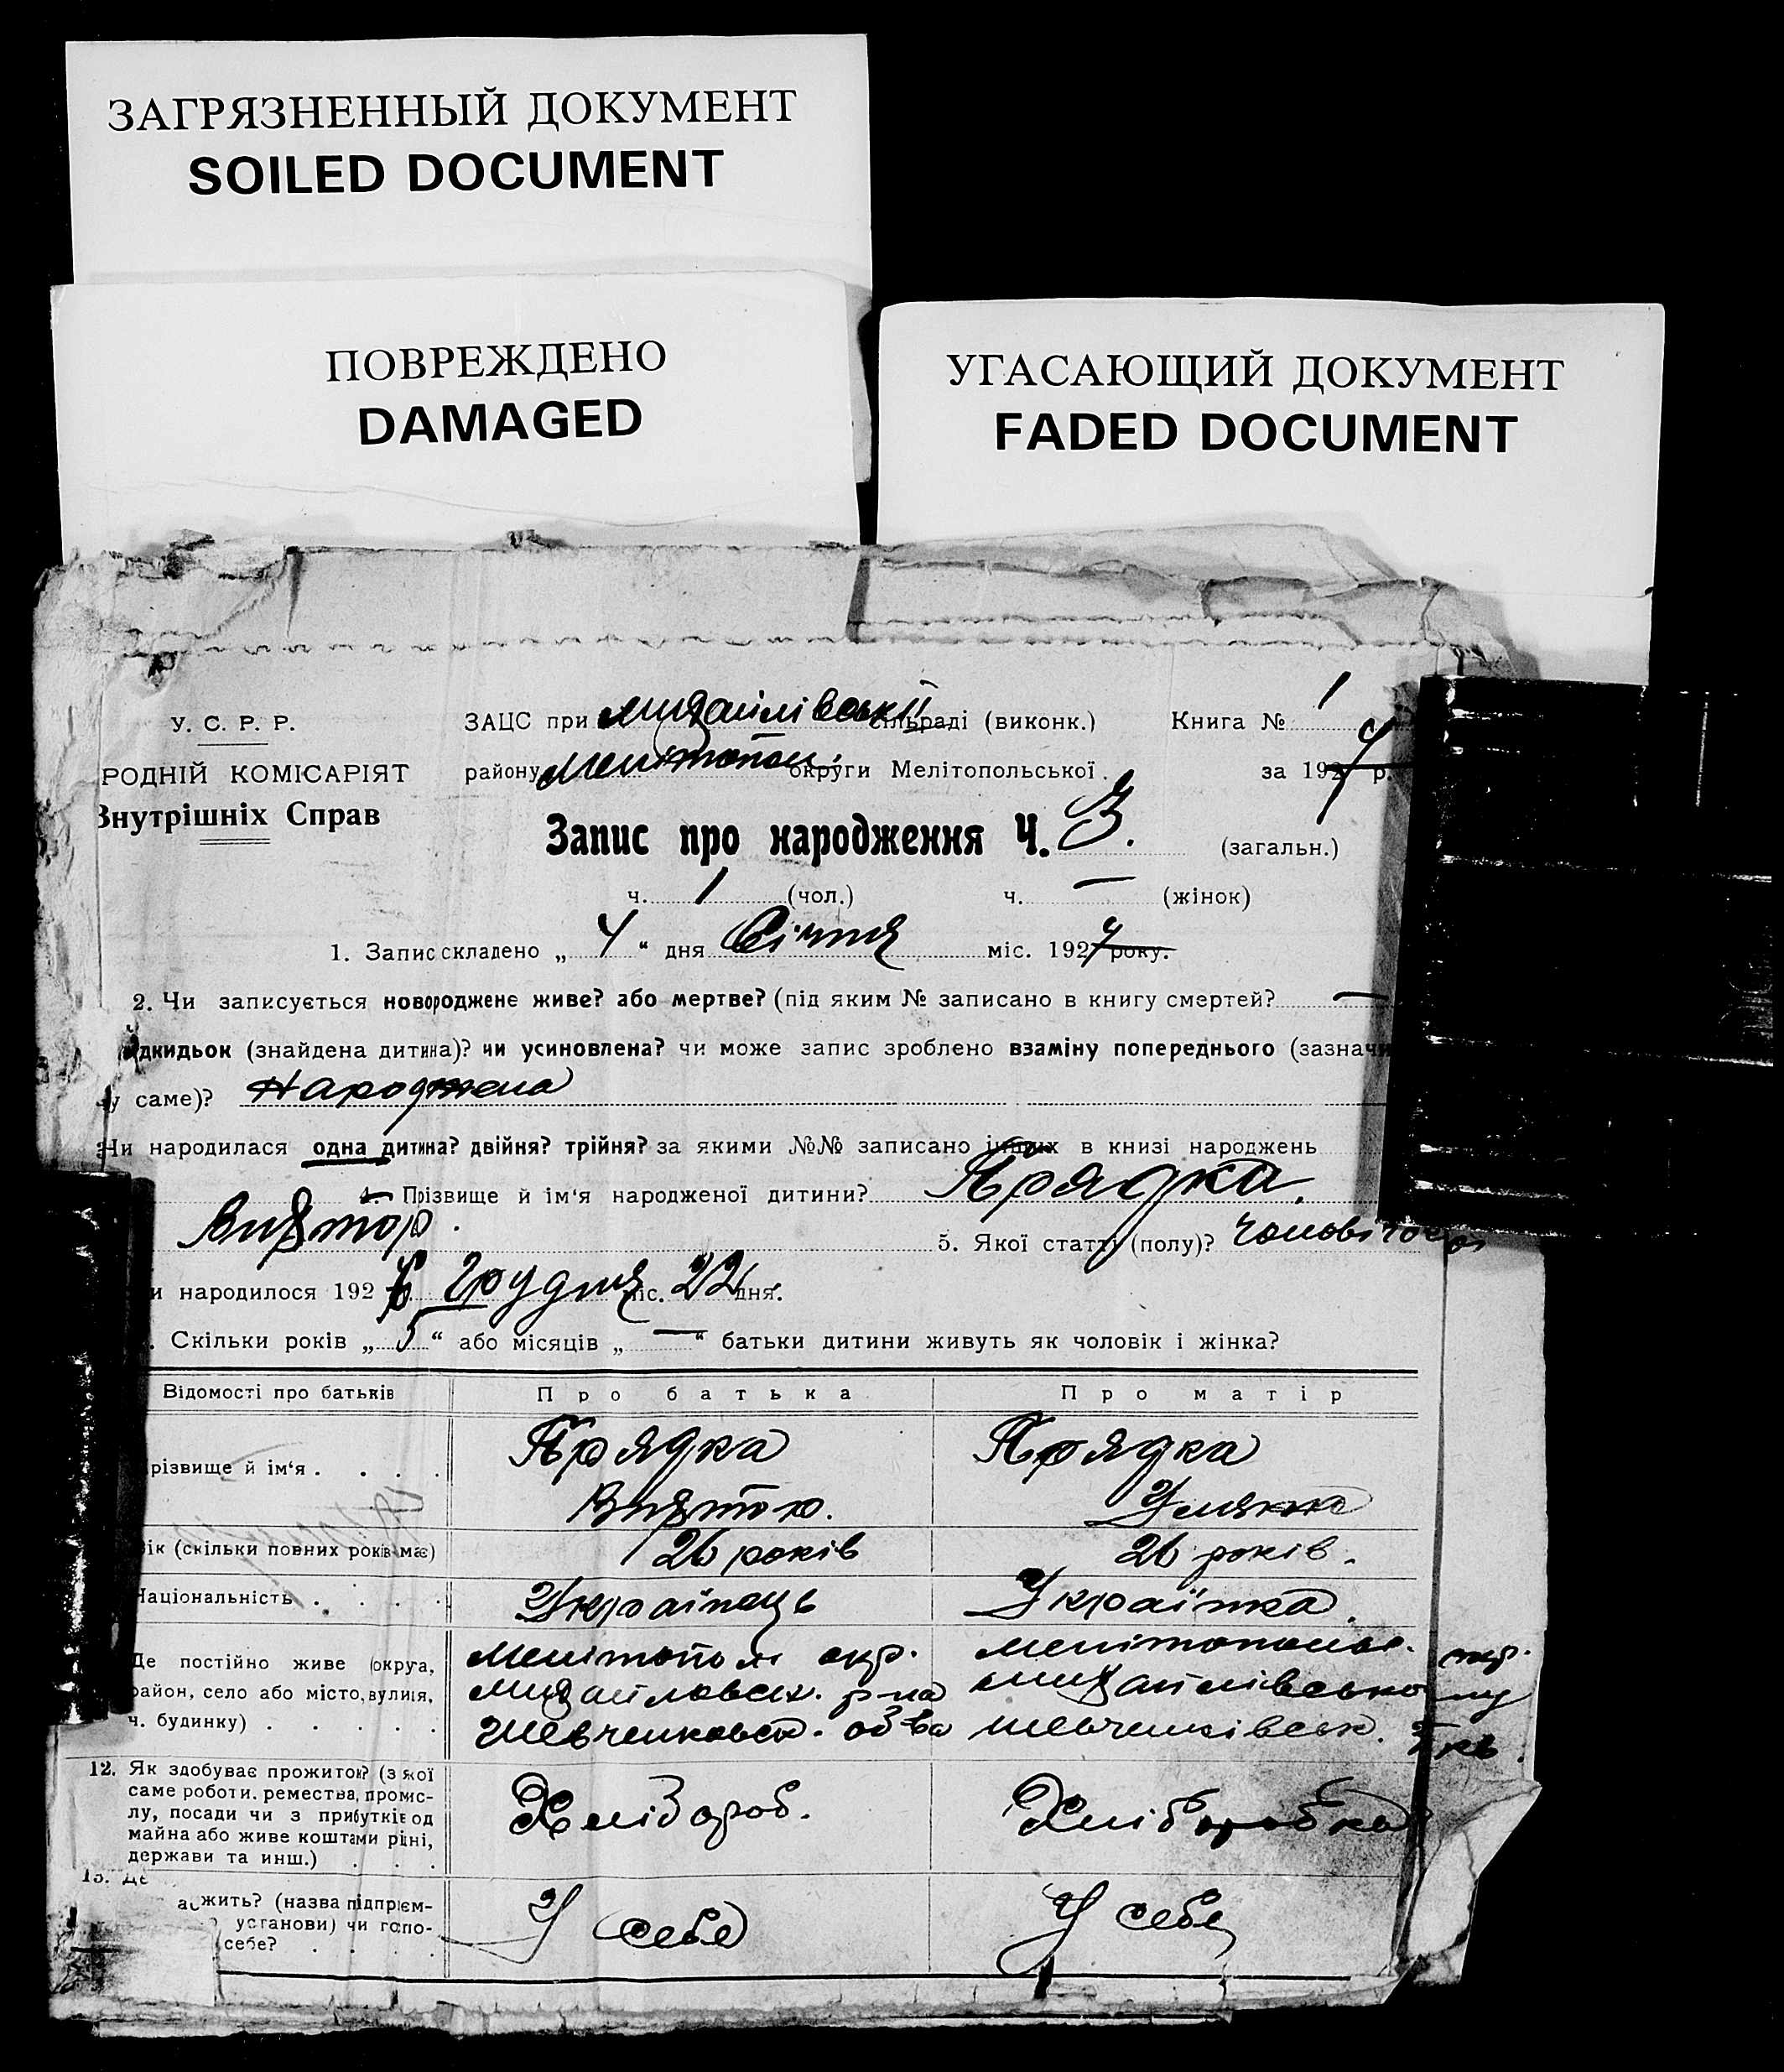 ЗАГРЯЗНЕННЫЙ ДОКУМЕНТ
SOILED DOCUMENT
ПОВРЕЖДЕНО
DAMAGED
УГАСАЮЩИЙ ДОКУМЕНТ
FADED DOCUMENT
У. С. Р. Р.
РОДНІЙ КОМІСАРІЯТ
Внутрішніх Справ
ЗАЦС при Михайлівській сільраді (виконк.)
району Мелітопол. округи Мелітопольської.
Книга № 1
за 1927 р.
Запис про народження Ч. 3. (загальн.)
ч. 1 (чол.) ч. — (жінок)
1. Запис складено „ 4 “ дня Січня міс. 1927 року.
2. Чи записується новороджене живе? або мертве? (під яким № записано в книгу смертей? —
дкидьок (знайдена дитина)? чи усиновлена? чи може запис зроблено взаміну попереднього (зазначи
у саме)? Народжена
Чи народилася одна дитина? двійня? трійня? за якими №№ записано інших в книзі народжень
4. Прізвище й ім'я народженої дитини? Прядка.
Виктор. 5. Якої статті (полу)? чоловічої
и народилося 1926 Грудня міс. 22 дня.
. Скільки років „ 5 “ або місяців „ — “ батьки дитини живуть як чоловік і жінка?
Відомості про батьків Про батька Про матір
різвище й ім'я . . . . Прядка Прядка
Виктор.
ік (скільки повних років має) 26 років 26 років.
Національність . . . . Українець Українка.
Де постійно живе (округа, Мелітопол окр. Мелітопольс. окр.
район, село або місто, вулиця, Михайловск. р-на Михайлівському
ч. будинку) . . . . . Шевченковск. Шевченківськ.
12. Як здобуває прожиток? (з якої
саме роботи, ремества, промис-
лу, посади чи з прибутків од
майна або живе коштами рідні,
держави та инш.) . . .
Хлібороб. Хліборобка
13. Де
жить? (назва підприєм-
установи) чи гопо-
себе? . . . .
У себе У себе